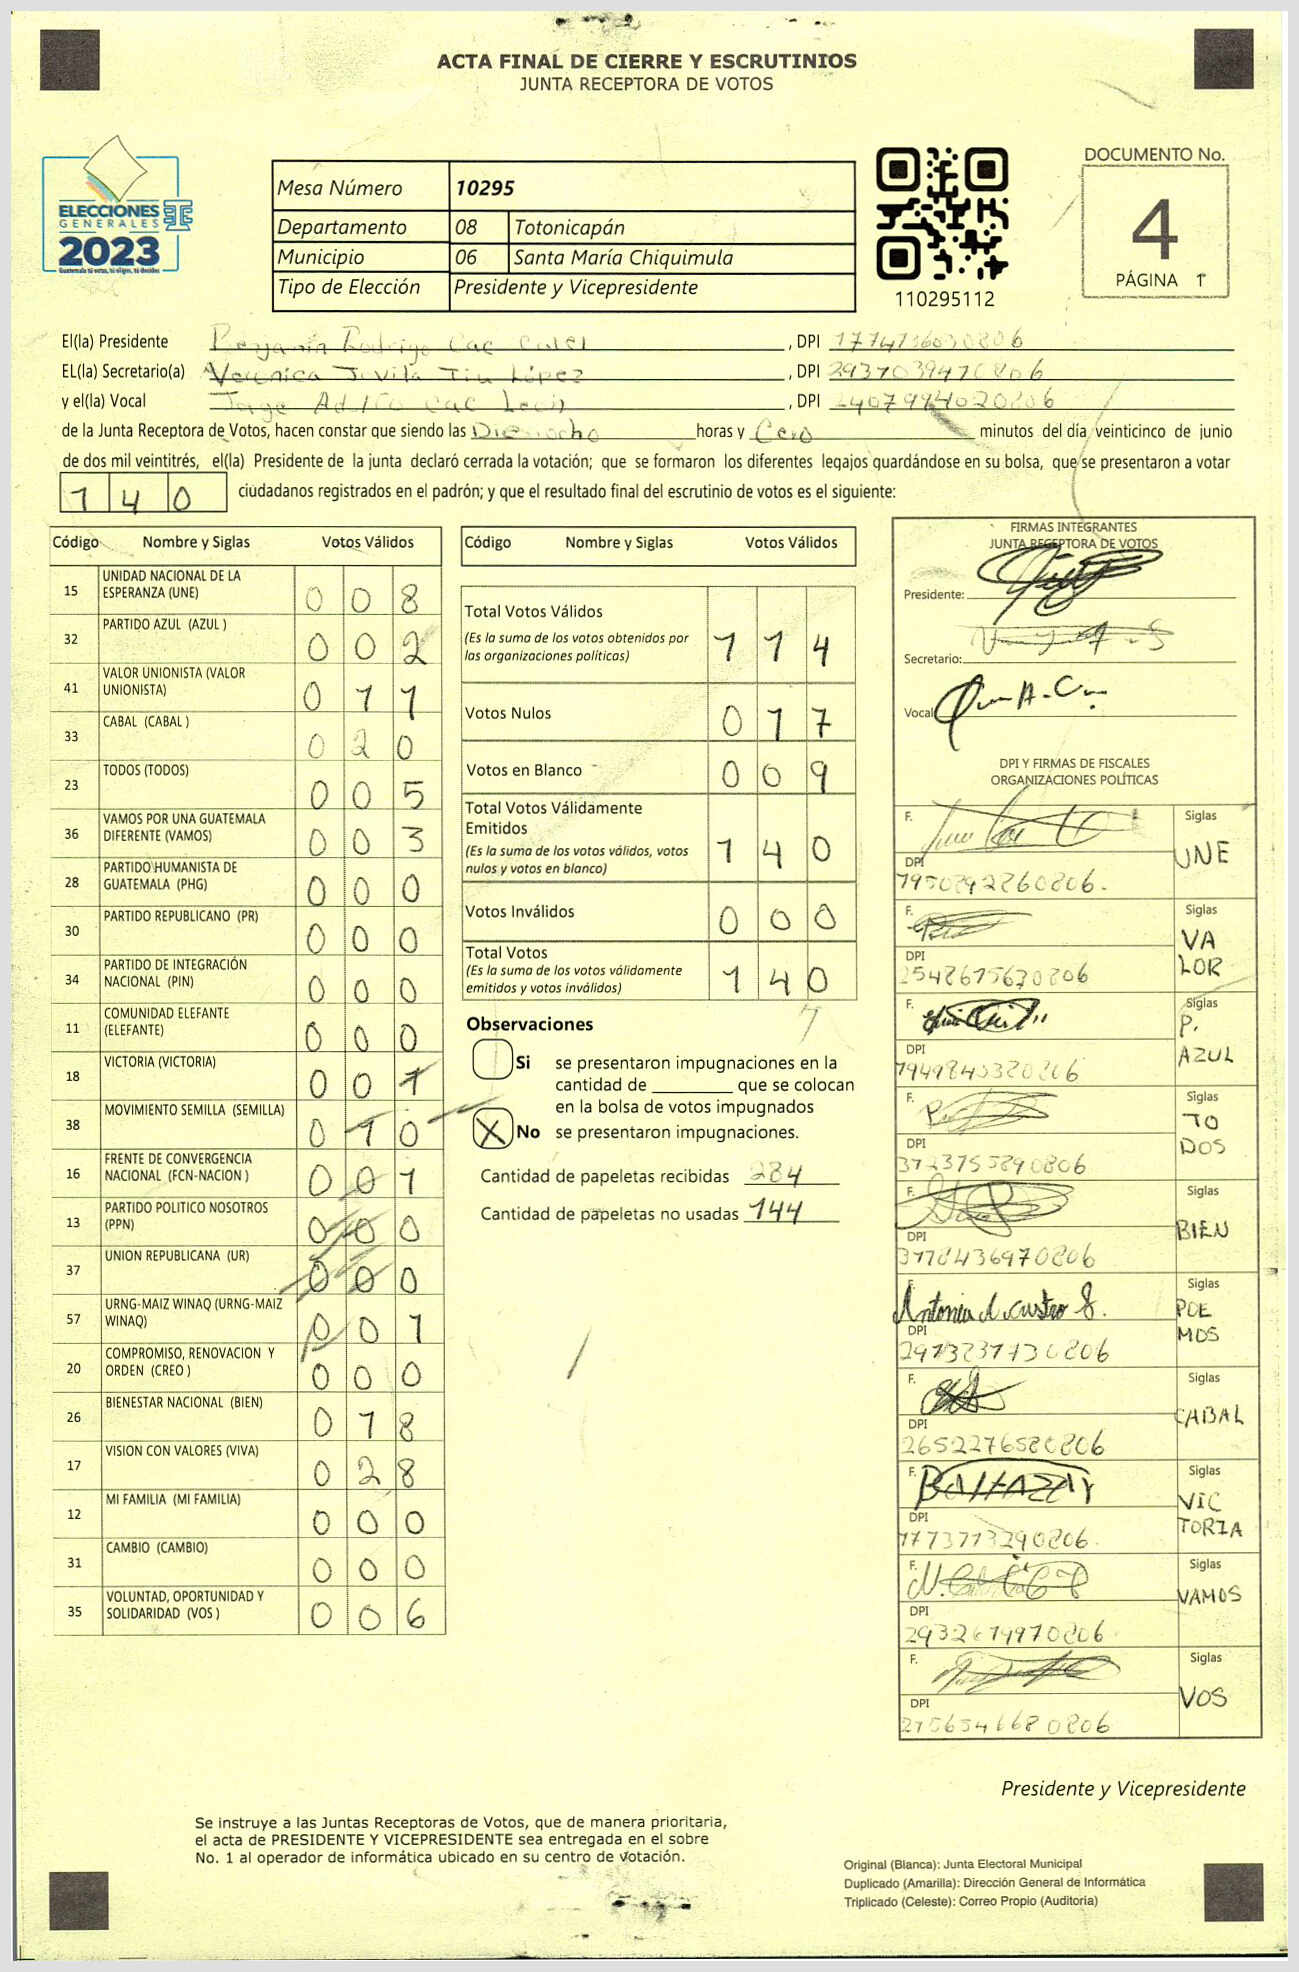 ACTA FINAL DE CIERRE Y ESCRUTINIOS
JUNTA RECEPTORA DE VOTOS
ELECCIONES
GENERALES
2023
Guatemala tú votas, tú eliges, tú decides
Mesa Número 10295
Departamento 08 Totonicapán
Municipio 06 Santa María Chiquimula
Tipo de Elección Presidente y Vicepresidente
110295112
DOCUMENTO No.
4
PÁGINA 1
El(la) Presidente Benjamín Rodrigo Cac , DPI
EL(la) Secretario(a) Veronica Juvila Tiu López , DPI 2937039470806
y el(la) Vocal Jorge Adolfo Cac León , DPI 2407994020806
de la Junta Receptora de Votos, hacen constar que siendo las Dieciocho horas y Cero minutos del día veinticinco de junio
de dos mil veintitrés, el(la) Presidente de la junta declaró cerrada la votación; que se formaron los diferentes legajos guardándose en su bolsa, que se presentaron a votar
140 ciudadanos registrados en el padrón; y que el resultado final del escrutinio de votos es el siguiente:
Código Nombre y Siglas Votos Válidos
15 UNIDAD NACIONAL DE LA ESPERANZA (UNE) 008
32 PARTIDO AZUL (AZUL ) 002
41 VALOR UNIONISTA (VALOR UNIONISTA) 011
33 CABAL (CABAL ) 020
23 TODOS (TODOS) 005
36 VAMOS POR UNA GUATEMALA DIFERENTE (VAMOS) 003
28 PARTIDO HUMANISTA DE GUATEMALA (PHG) 000
30 PARTIDO REPUBLICANO (PR) 000
34 PARTIDO DE INTEGRACIÓN NACIONAL (PIN) 000
11 COMUNIDAD ELEFANTE (ELEFANTE) 000
18 VICTORIA (VICTORIA) 001
38 MOVIMIENTO SEMILLA (SEMILLA) 010
16 FRENTE DE CONVERGENCIA NACIONAL (FCN-NACION ) 001
13 PARTIDO POLITICO NOSOTROS (PPN) 000
37 UNION REPUBLICANA (UR) 000
57 URNG-MAIZ WINAQ (URNG-MAIZ WINAQ) 001
20 COMPROMISO, RENOVACION Y ORDEN (CREO ) 000
26 BIENESTAR NACIONAL (BIEN) 018
17 VISION CON VALORES (VIVA) 028
12 MI FAMILIA (MI FAMILIA) 000
31 CAMBIO (CAMBIO) 000
35 VOLUNTAD, OPORTUNIDAD Y SOLIDARIDAD (VOS ) 006
Código Nombre y Siglas Votos Válidos
Total Votos Válidos 114
(Es la suma de los votos obtenidos por
las organizaciones políticas)
Votos Nulos 017
Votos en Blanco 009
Total Votos Válidamente
Emitidos 140
(Es la suma de los votos válidos, votos
nulos y votos en blanco)
Votos Inválidos 000
Total Votos 140
(Es la suma de los votos válidamente
emitidos y votos inválidos)
Observaciones
Si se presentaron impugnaciones en la
cantidad de ________ que se colocan
en la bolsa de votos impugnados
X No se presentaron impugnaciones.
Cantidad de papeletas recibidas 284
Cantidad de papeletas no usadas 144
FIRMAS INTEGRANTES
JUNTA RECEPTORA DE VOTOS
Presidente:
Secretario:
Vocal
DPI Y FIRMAS DE FISCALES
ORGANIZACIONES POLÍTICAS
F. Siglas
UNE
DPI
F. Siglas
VALOR
DPI
2548675670806
F. Siglas
P. AZUL
DPI
F. Siglas
TODOS
DPI
F. Siglas
BIEN
DPI
F. Antonia M. Castro Siglas
POEMOS
DPI
F. Siglas
CABAL
DPI
2652276580806
F. BALTAZAR Siglas
VICTORIA
DPI
1773773290806
F. Siglas
VAMOS
DPI
2932679970806
F. Siglas
VOS
DPI
Presidente y Vicepresidente
Se instruye a las Juntas Receptoras de Votos, que de manera prioritaria,
el acta de PRESIDENTE Y VICEPRESIDENTE sea entregada en el sobre
No. 1 al operador de informática ubicado en su centro de votación.
Original (Blanca): Junta Electoral Municipal
Duplicado (Amarilla): Dirección General de Informática
Triplicado (Celeste): Correo Propio (Auditoria)